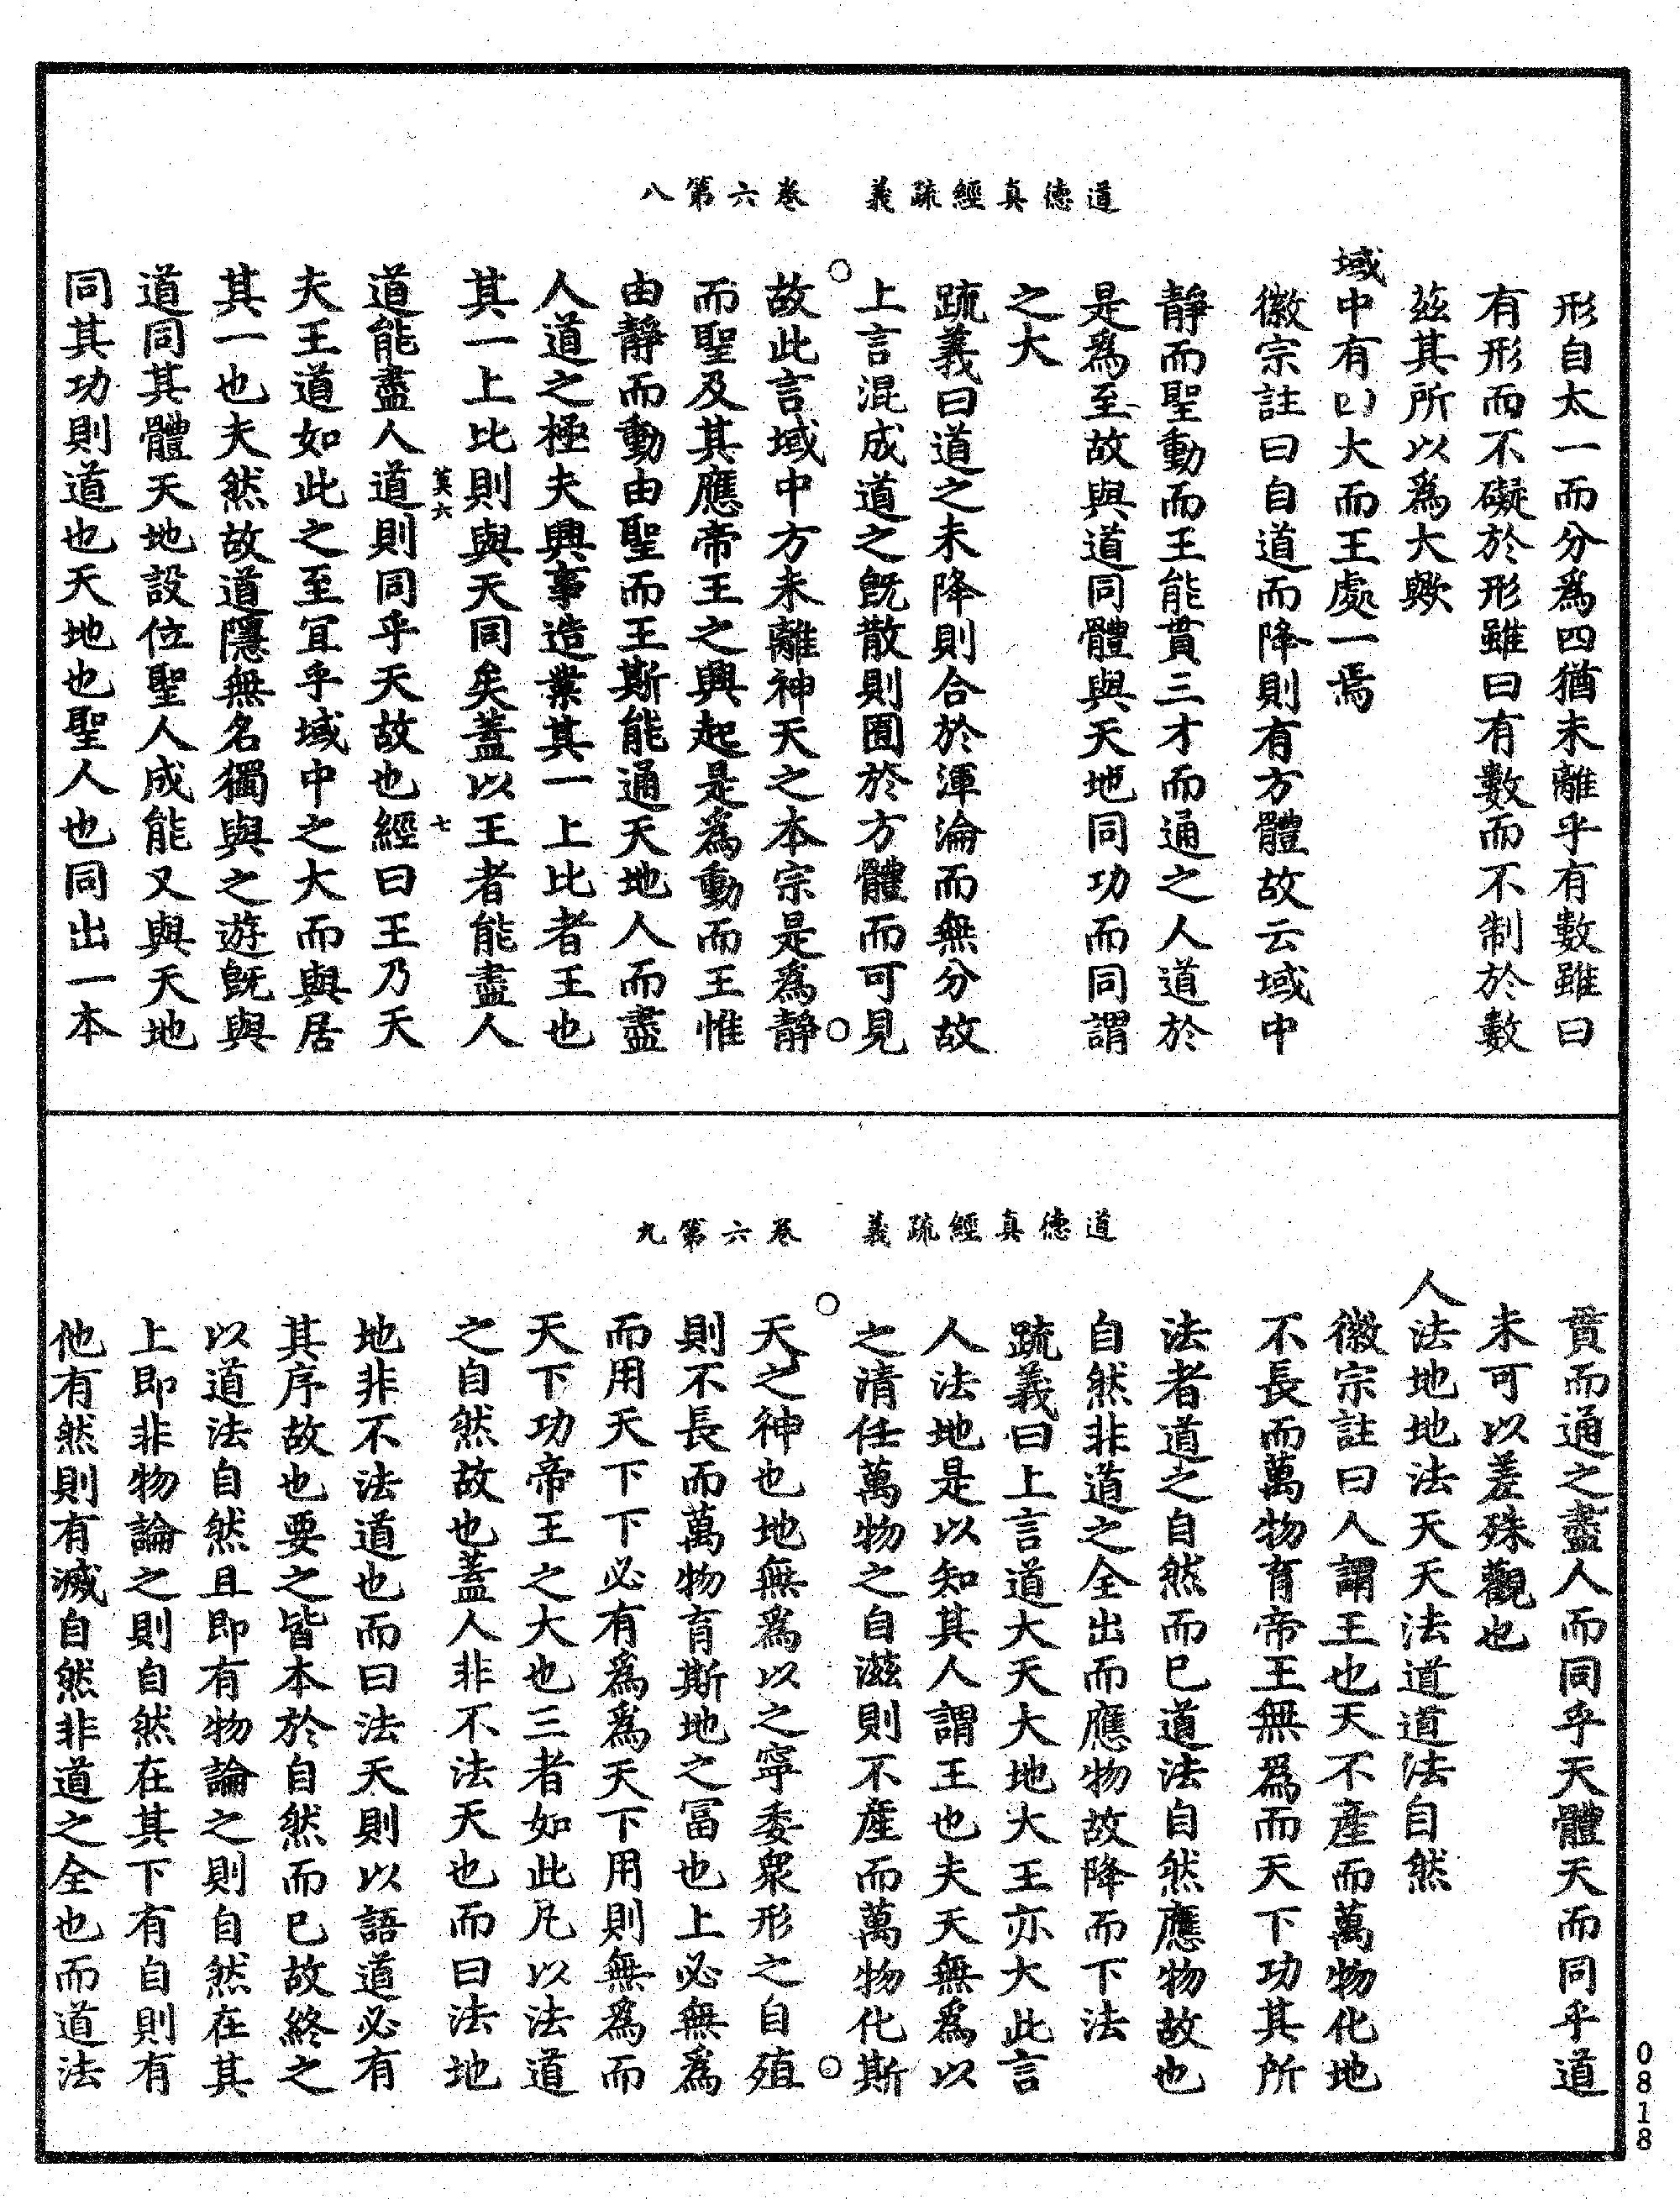 道德真經疏義　卷六第八
形自太一而分爲四猶未離乎有數雖曰
有形而不礙於形雖曰有數而不制於數
茲其所以爲大歟
域中有四大而王處一焉
徽宗註曰自道而降則有方體故云域中
靜而聖動而王能貫三才而通之人道於
是爲至故與道同體與天地同功而同謂
之大
疏義曰道之未降則合於渾淪而無分故
上言混成道之旣散則囿於方體而可見
故此言域中方未離神天之本宗是爲靜
而聖及其應帝王之興起是爲動而王惟
由靜而動由聖而王斯能通天地人而盡
人道之極夫興事造業其一上比者王也
其一上比則與天同矣蓋以王者能盡人
莫六　七
道能盡人道則同乎天故也經曰王乃天
夫王道如此之至宜乎域中之大而與居
其一也夫然故道隱無名獨與之遊旣與
道同其體天地設位聖人成能又與天地
同其功則道也天地也聖人也同出一本
道德真經疏義　卷六第九
貫而通之盡人而同乎天體天而同乎道
未可以差殊觀也
人法地地法天天法道道法自然
徽宗註曰人謂王也天不產而萬物化地
不長而萬物育帝王無爲而天下功其所
法者道之自然而已道法自然應物故也
自然非道之全出而應物故降而下法
疏義曰上言道大天大地大王亦大此言
人法地是以知其人謂王也夫天無爲以
之清任萬物之自滋則不產而萬物化斯
天之神也地無爲以之寧委衆形之自殖
則不長而萬物育斯地之富也上必無爲
而用天下下必有爲爲天下用則無爲而
天下功帝王之大也三者如此凡以法道
之自然故也蓋人非不法天也而曰法地
地非不法道也而曰法天則以語道必有
其序故也要之皆本於自然而已故終之
以道法自然且即有物論之則自然在其
上即非物論之則自然在其下有自則有
他有然則有滅自然非道之全也而道法
0818